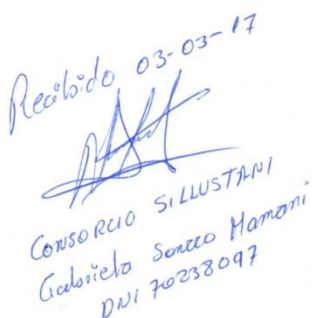 Recibido 03-03-17
CONSORCIO SILLUSTANI
Gabriela Soncco Mamani
DNI 70238097